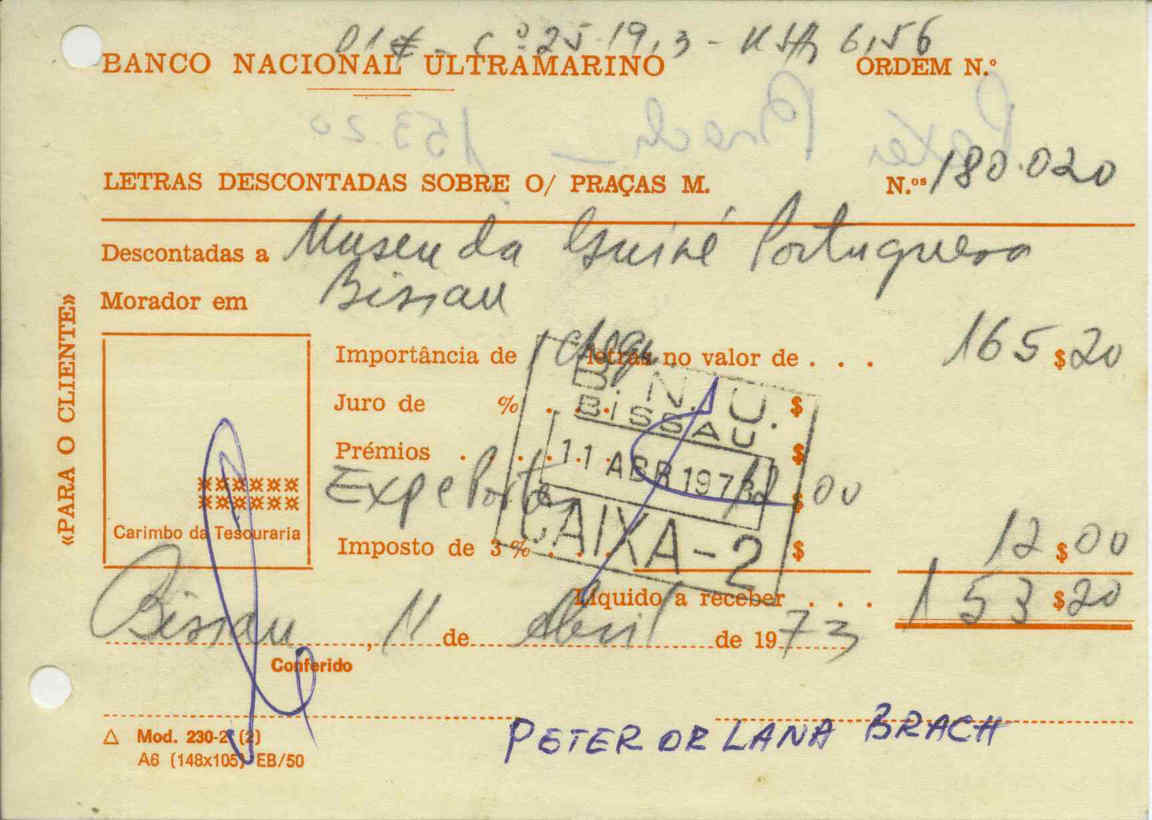 01£ - cº 25-19,3 - 6,56
BANCO NACIONAL ULTRAMARINO ORDEM N.º
Brach - 153.20
LETRAS DESCONTADAS SOBRE O/ PRAÇAS M. N.ºˢ 180.020
Descontadas a Museu da Guiné Portuguesa
Morador em Bissau
«PARA O CLIENTE»
Importância de 1 letras no valor de . . . 165 $ 20
Juro de % . . . $
Prémios . . . . $
Exp e Portes 12 $ 00
Imposto de 3% . . . $ 12 $ 00
Carimbo da Tesouraria
B. N. U.
BISSAU
11 ABR 1973
CAIXA-2
Líquido a receber . . . 153 $ 20
Bissau, 11 de Abril de 1973
Conferido
PETER OR LANA BRACH
△ Mod. 230-2 (2)
A6 (148x105) EB/50